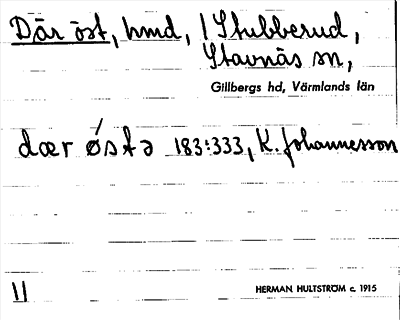 Där öst, hmd, / Stubberud,
Stavnäs sn,
Gillbergs hd, Värmlands län
dær østa 183:333, K. Johannesson
11
HERMAN HULTSTRÖM c. 1915